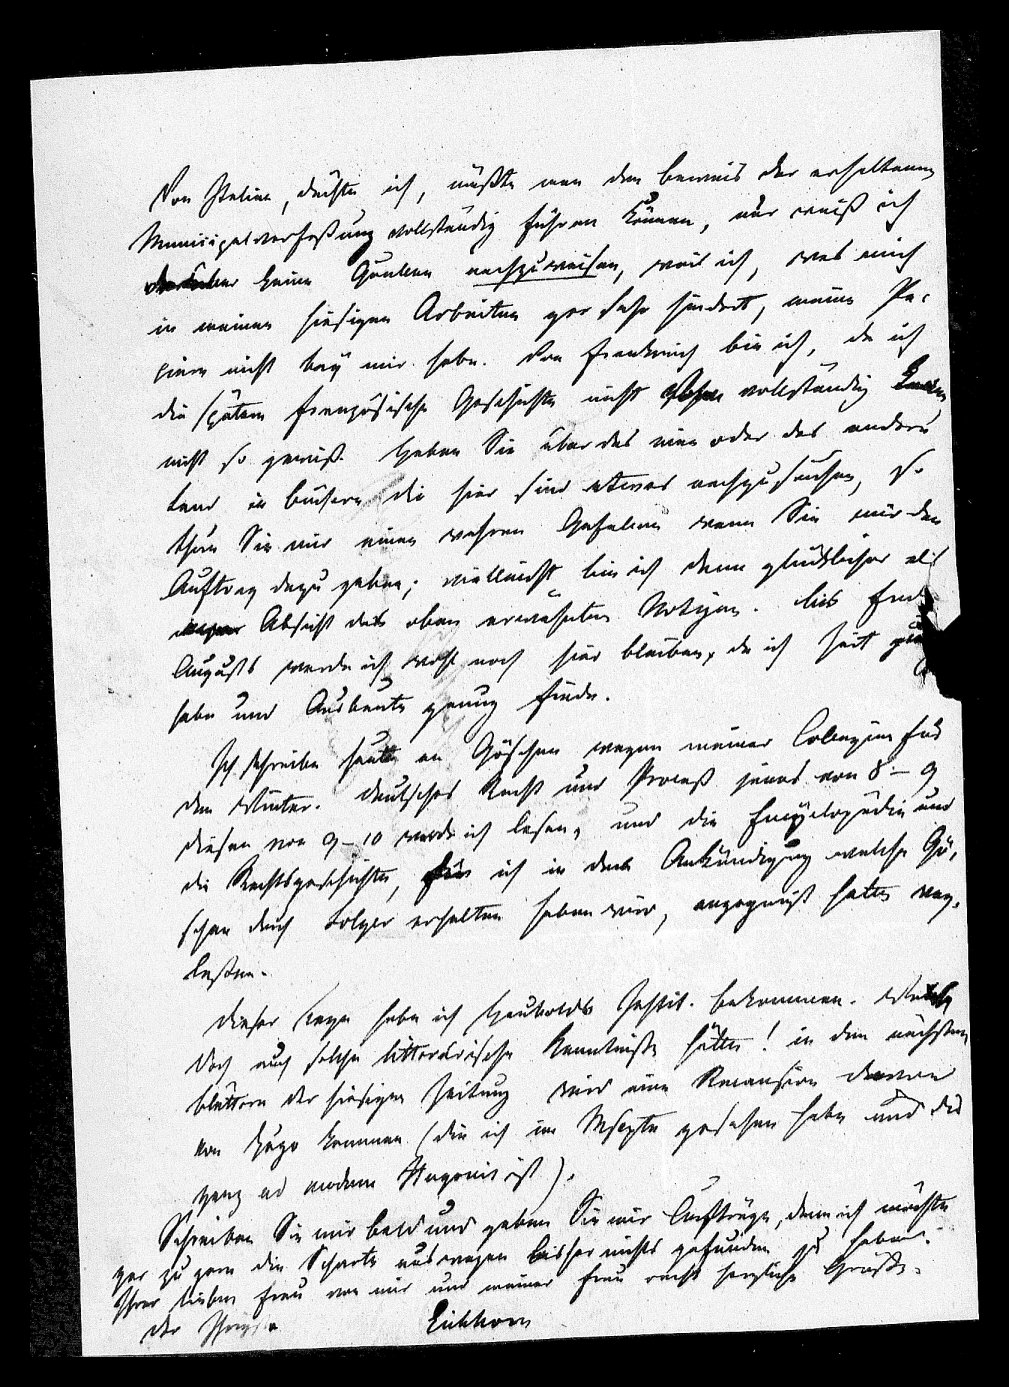 Von Italien, dächte ich, müßte man den Beweis der erhaltenen
Municipalverfaßung vollständig führen können, nur weiß ich
darüber keine Quellen nachzuweisen, weil ich, was mich
in meinen hiesigen Arbeiten gar sehr hindert, meine Pa-
piere nicht bey mir habe. Von Frankreich bin ich, da ich
die spätere französische Geschichte nicht vollständig kenne,
nicht so gewiß. Haben Sie über das eine oder das andere
Land in Büchern die hier sind etwas nachzusuchen, so
thun Sie mir einen wahren Gefallen wenn Sie mir den
Auftrag dazu geben; vielleicht bin ich dann glücklicher als
in Absicht der oben erwähnten Notizen. Bis Ende
Augusts werde ich wohl noch hier bleiben, da ich Zeit
habe und Ausbeute genug finde.
Ich schreibe heute an Göschen wegen meiner Collegien für
den Winter. Deutsches Recht und Proceß jenes von 8-9
diesen von 9-10 werde ich lesen, und die Encyclopädie und
die Rechtsgeschichte, die ich in der Ankündigung welche Gö-
schen durch Solger erhalten haben wird, angezeigt hatte weg-
laßen.
Dieser Tage habe ich Haubolds Instit. bekommen. Wer
doch auch solche litterärische Kenntniße hätte! in den nächsten
Blättern der hiesigen Zeitung wird eine Recension davon
von Hugo kommen (die ich im Mscpte gesehen habe und die
ganz ad modum Hugonis ist).
Schreiben Sie mir bald und geben Sie mir Aufträge, denn ich möchte
gar zu gern die Scharte auswetzen bisher nichts gefunden zu haben.
Ihrer lieben Frau von mir und meiner Frau recht herzliche Grüße.
der Ihrige
Eichhorn